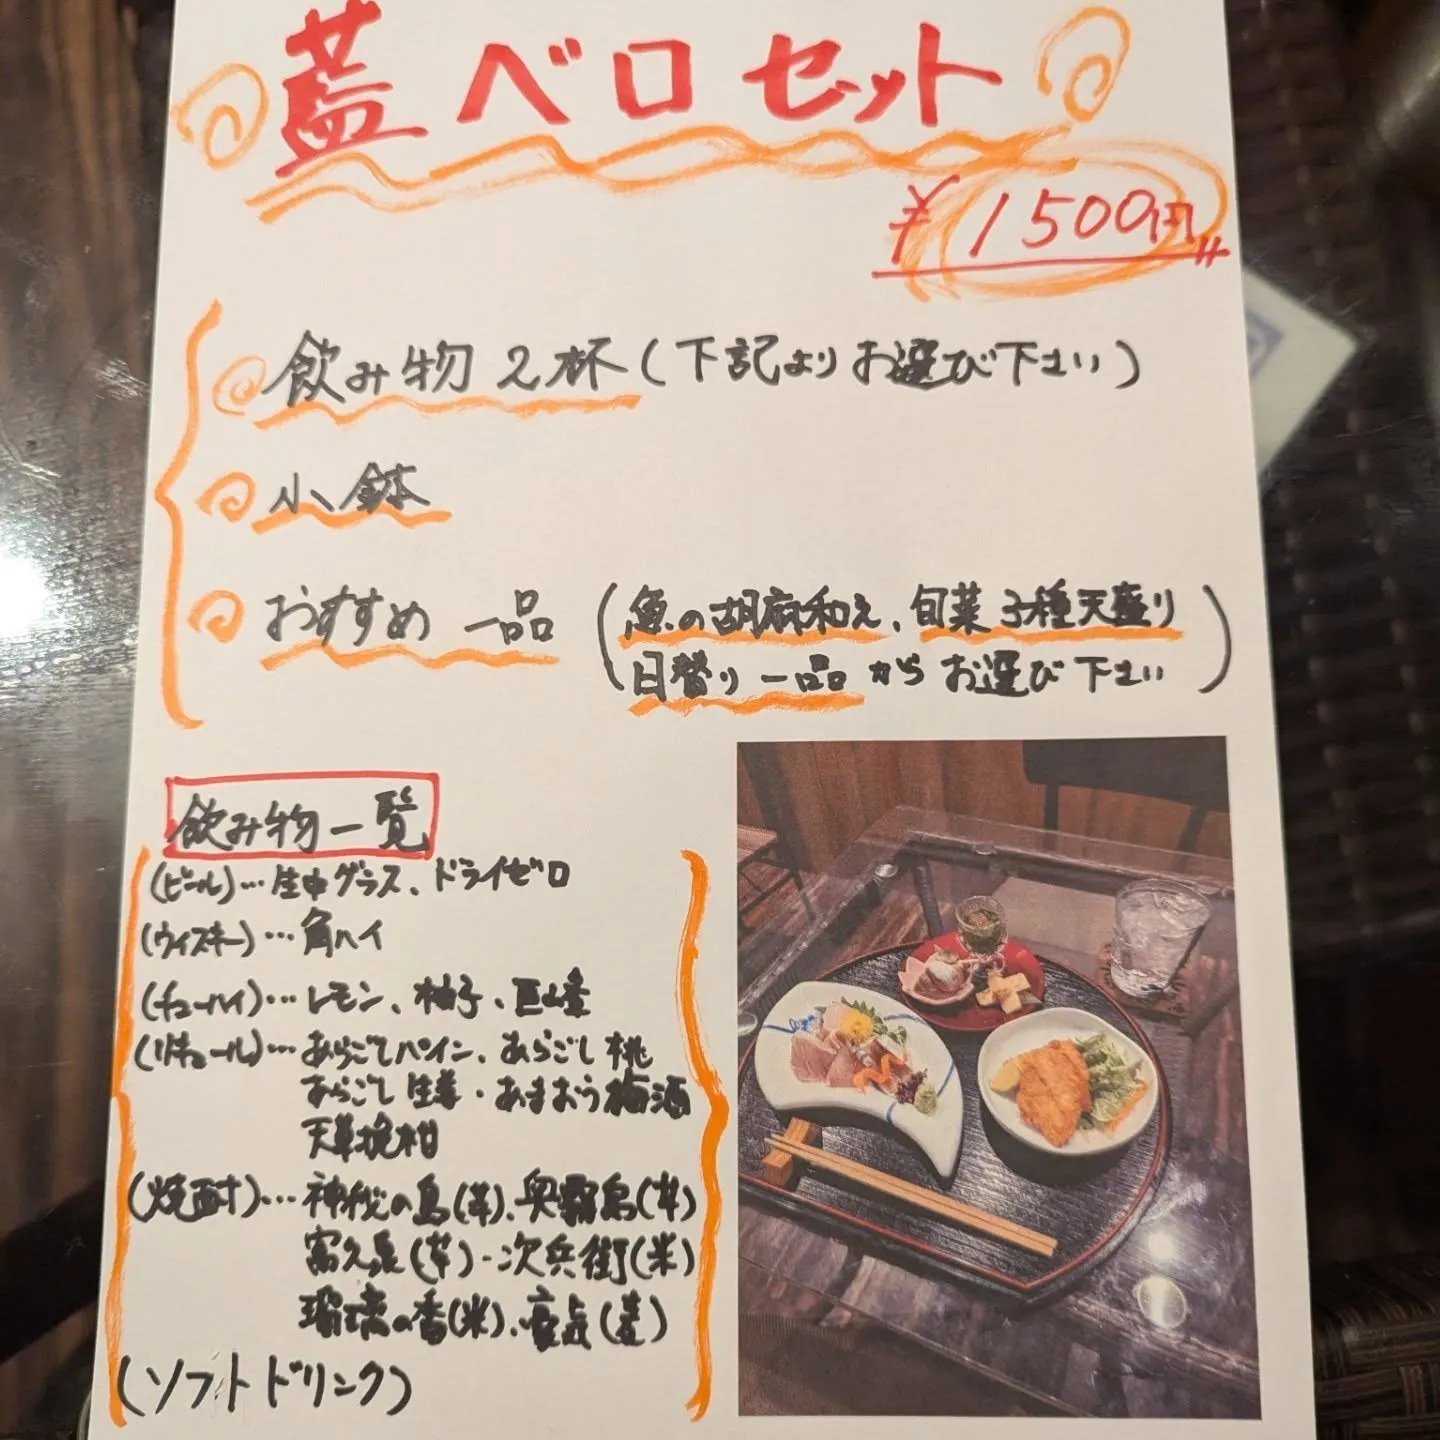 藍ベロセット
¥1500円
飲み物2杯(下記よりお選び下さい)
小鉢
おすすめ一品(魚の胡麻和え、旬菜3種天盛り
日替り一品からお選び下さい)
飲み物一覧
(ビール)…生中グラス、ドライゼロ
(ウィスキー)…角ハイ
(チューハイ)…レモン、柚子、巨峰
(リキュール)…あらごしパイン、あらごし桃
あらごし生姜・あまおう梅酒
天草晩柑
(焼酎)…神秘の島(芋)、奥霧島(芋)
富久屋(芋)・次兵衛(米)
瑠璃の香(米)、(麦)
(ソフトドリンク)